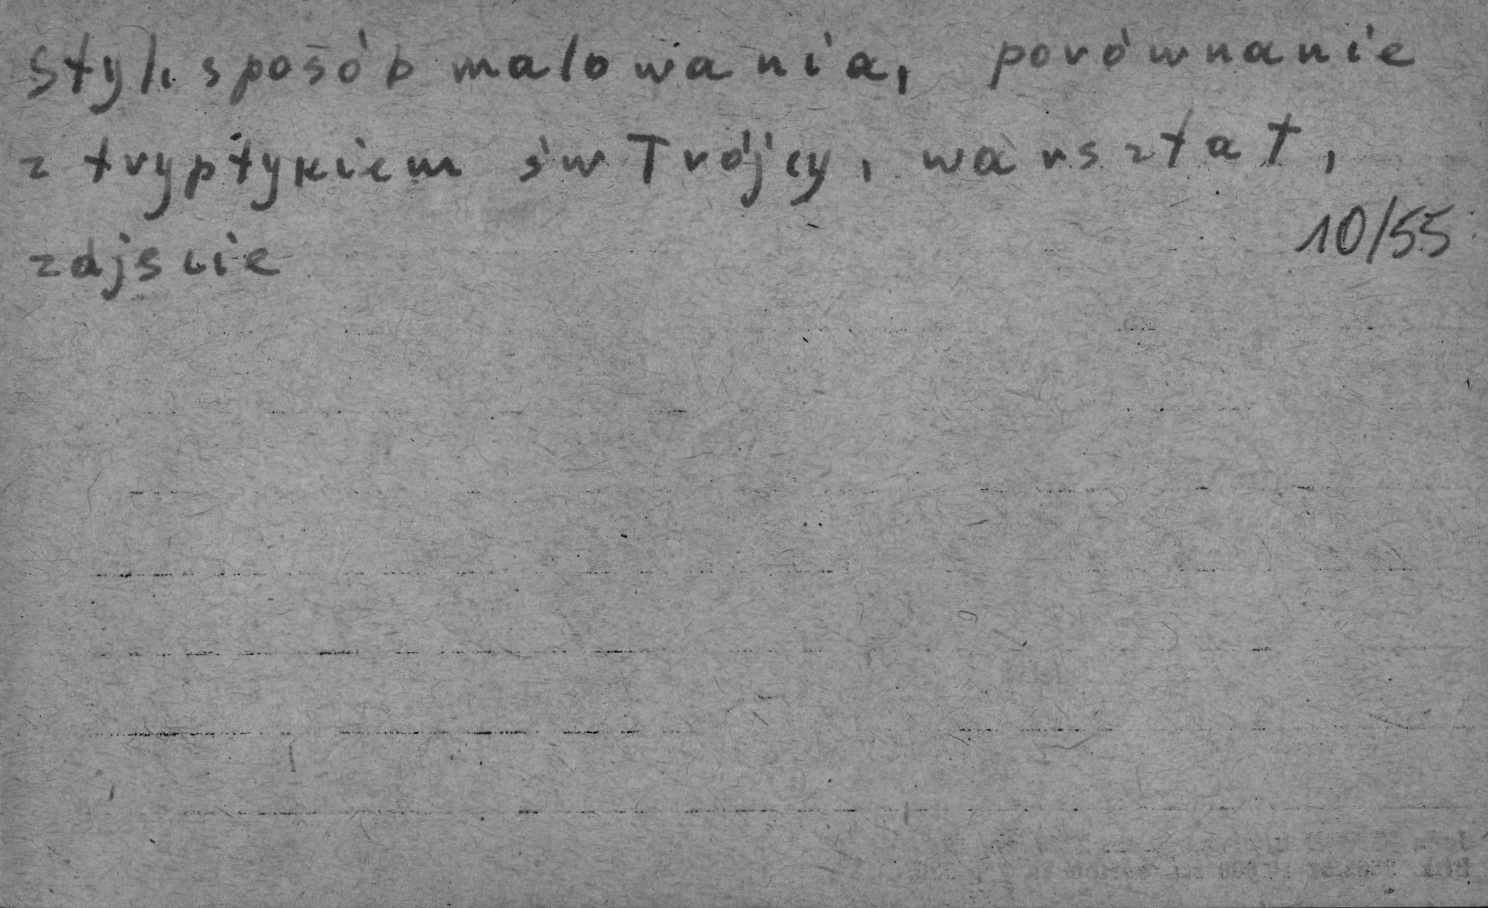 styl, sposób malowania, porównanie
z tryptykiem św Trójcy, warsztat,
zdjscie
10/55